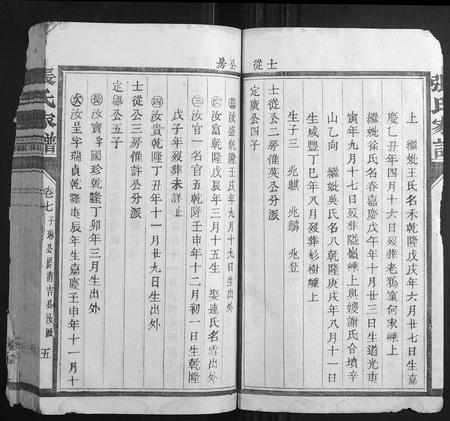 士從
公房
張氏家譜
上
繼妣王氏名禾乾隆戊戌年六月廿七日生嘉
慶乙丑年四月十六日歿葬老鴉窠何家𡶶上
繼妣徐氏名春嘉慶戊午年十月廿三日生道光庚
寅年九月十七日歿葬隘嶺𡶶上與嫂謝氏合墳辛
山乙向 繼妣吳氏名八乾隆庚戌年八月十一日
生咸豐丁巳年八月歿葬杉樹𡶶上
生子三 兆麒 兆麟 兆登
士從公二房惟英公分派
定廣公四子
汝盛乾隆壬戌年九月廿九日生出外
汝富乾隆戊辰年三月十五生 娶連氏名雪出外
三 汝官一名官五乾隆壬申年十二月初一日生乾隆
戊子年歿葬未詳止
四 汝貴乾隆丁丑年十一月廿九日生出外
士從公三房惟許公分派
定舉公五子
長 汝寶字國珍乾隆丁卯年三月生出外
次 汝呈字瑞貞乾隆庚辰年生嘉慶壬申年十一月十
張氏家譜
卷七 子琳公房清吉公汝派
五